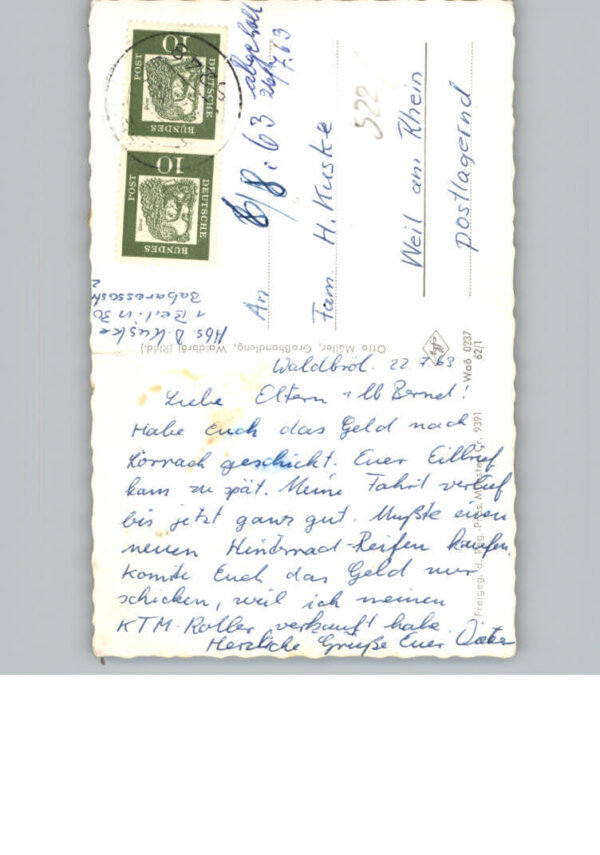 Waldbröl. 22.7.63
Liebe Eltern + lb Bernd!
Habe Euch das Geld nach
Lörrach geschickt. Euer Eilbrief
kam zu spät. Meine Fahrt verlief
bis jetzt ganz gut. Mußte einen
neuen Hinterrad-Reifen kaufen.
Konnte Euch das Geld nur
schicken, weil ich meinen
KTM-Roller verkauft habe.
Herzliche Grüße Euer Dieter
Abs. D. Kuske
1 Berlin 30
2
An
Fam. H. Kuske
Weil am Rhein
postlagernd
522
6/8.63
abgeholt
26/7.63
DEUTSCHE
BUNDES
POST
10
DEUTSCHE
BUNDES
POST
10
Otto Müller, Großhandlung, Waldbröl (Rhld.)
Waö 0237
62/1
Freigeg. d. Reg.-Präs. Münster Nr. 9391